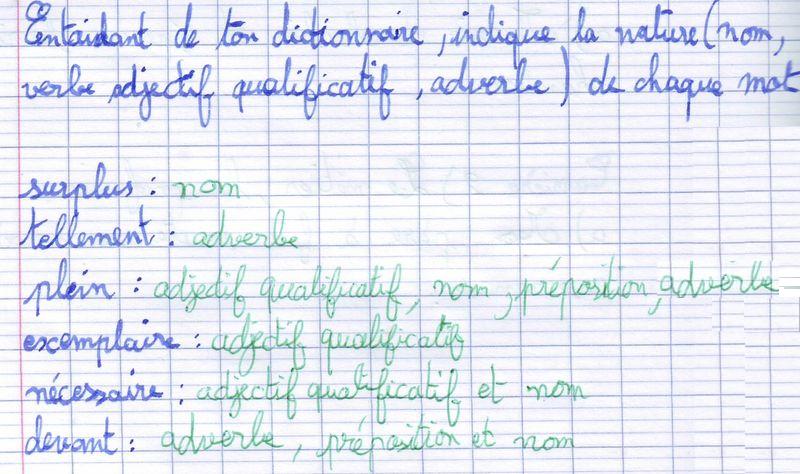 En t'aidant de ton dictionnaire, indique la nature (nom,
verbe adjectif qualificatif, adverbe) de chaque mot
surplus : nom
tellement : adverbe
plein : adjectif qualificatif, nom, préposition, adverbe
exemplaire : adjectif qualificatif
nécessaire : adjectif qualificatif et nom
devant : adverbe, préposition et nom